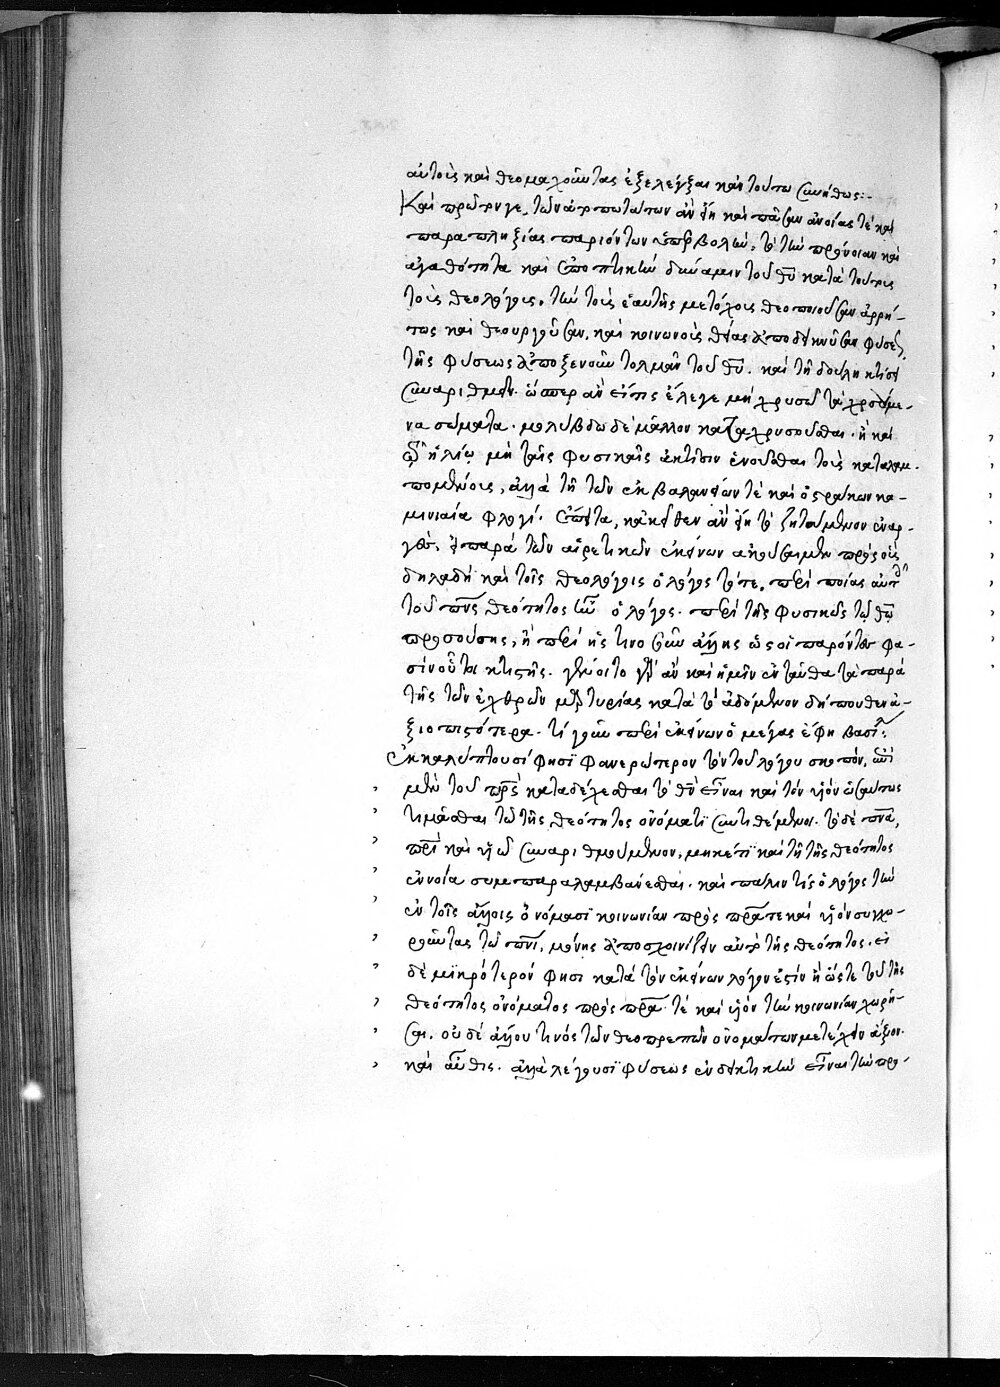 αὐτοὺς καὶ θεομαχοῦντας ἐξελέγξαι καὶ τούτω συνήθως:-
Καὶ πρῶτον γε, τῶν ἀτοπωτάτων ἂν εἴη καὶ πᾶσαν ἀνοίας τὲ καὶ
παραπληξίας παριόντων ὑπερβολὴν, τὸ τὴν πρόνοιαν καὶ
ἀγαθότητα καὶ ἐποπτικὴν δύναμιν τοῦ θῦ κατὰ τούτους
τοὺς θεολόγους, τὴν τοὺς ἑαυτῆς μετόχους θεοποιοῦσαν ἀρρή-
τως καὶ θεουργοῦσαν, καὶ κοινωνοὺς θείας ἀποδεικνῦσαν φύσεως,
τῆς φύσεως ἀποξενοῦν τολμᾶν τοῦ θῦ. καὶ τῇ δούλη κτίσει
συναριθμεῖν. ὥσπερ ἂν εἴ τις ἔλεγε μὴ χρυσῶ τὰ χρούμε-
να σώματα. μολύβδω δὲ μᾶλλον καταχρυσοῦσθαι. ἢ καὶ
τῷ ἡλίῳ μὴ ταῖς φυσικαῖς ἀκτῖσιν ἑνοῦσθαι τοὺς καταλαμ-
πομένους, ἀλλὰ τῇ τῶν ἐκ βαλανείων τὲ καὶ ὀστράκων κα-
μινιαία φλογί. ἔπειτα, κἀκεῖθεν ἂν εἴη τὸ ζητούμενον ἐναρ-
γὲς, ἐπαρὰ τῶν αἱρετικῶν ἐκείνων ἀκούσαιμεν πρὸς οὓς
δηλαδὴ καὶ τοῖς θεολόγοις ὁ λόγος τότε, περὶ ποίας αὐτοῖς
τοῦ πνς θεότητος ἦν ὁ λόγος. περὶ τῆς φυσικῶς τῷ θῷ
προσούσης, ἢ περί ἧς τινο σοῦν ἄλλης ὡς οἱ παρόντες φα-
σὶν οὗτοι κτιστῆς. γένοιτο γὰρ ἂν καὶ ἡμῖν ἐνταῦθα τὰ παρὰ
τῆς τῶν ἐχθρῶν μαρτυρίας κατὰ τὸ ἀδόμενον δήπουθεν ἀ-
ξιοπιστότερα. τί γοῦν περὶ ἐκείνων ὁ μέγας ἔφη βασίλ:
Ἐκκαλύπτουσί φησϊ φανερώτερον τὸν τοῦ λόγου σκοπόν, ἐπὶ
μὲν τοῦ πρς καταδέχεσθαι τὸ θς εἶναι καὶ τὸν υἱὸν ὡσαύτως
τιμᾶσθαι τῶ τῆς θεότητος ὀνόματϊ συντιθέμενοι. τὸ δὲ πνα,
πρὶ καὶ υἱῶ συναριθμούμενον, μηκέτϊ καὶ τῇ τῆς θεότητος
ἐννοία συμπαραλαμβάνεσθαι. καὶ πάλιν τίς ὁ λόγος τὴν
ἐν τοῖς ἄλλοις ὀνόμασϊ κοινωνίαν πρὸς πρα τε καὶ υἱὸν συγχω-
ροῦντας τῶ πνι, μόνης ἀποσχοινίζειν αὐτὸ τῆς θεότητος. εἰ
δὲ μϊκρότερόν φησι κατὰ τὸν ἐκείνων λόγον ἐστὶν ἢ ὥστε τοῦ τῆς
θεότητος ὀνόματος πρὸς πρα τὲ καὶ υἱὸν τὴν κοινωνίαν χωρῆ-
σαι. οὐδὲ ἄλλου τινὸς τῶν θεοπρεπῶν ὀνομάτων μετέχειν ἄξιον.
καὶ αὖθις. ἀλλὰ λέγουσϊ φύσεως ἐνδεικτικὴν εἶναι τὴν προ-